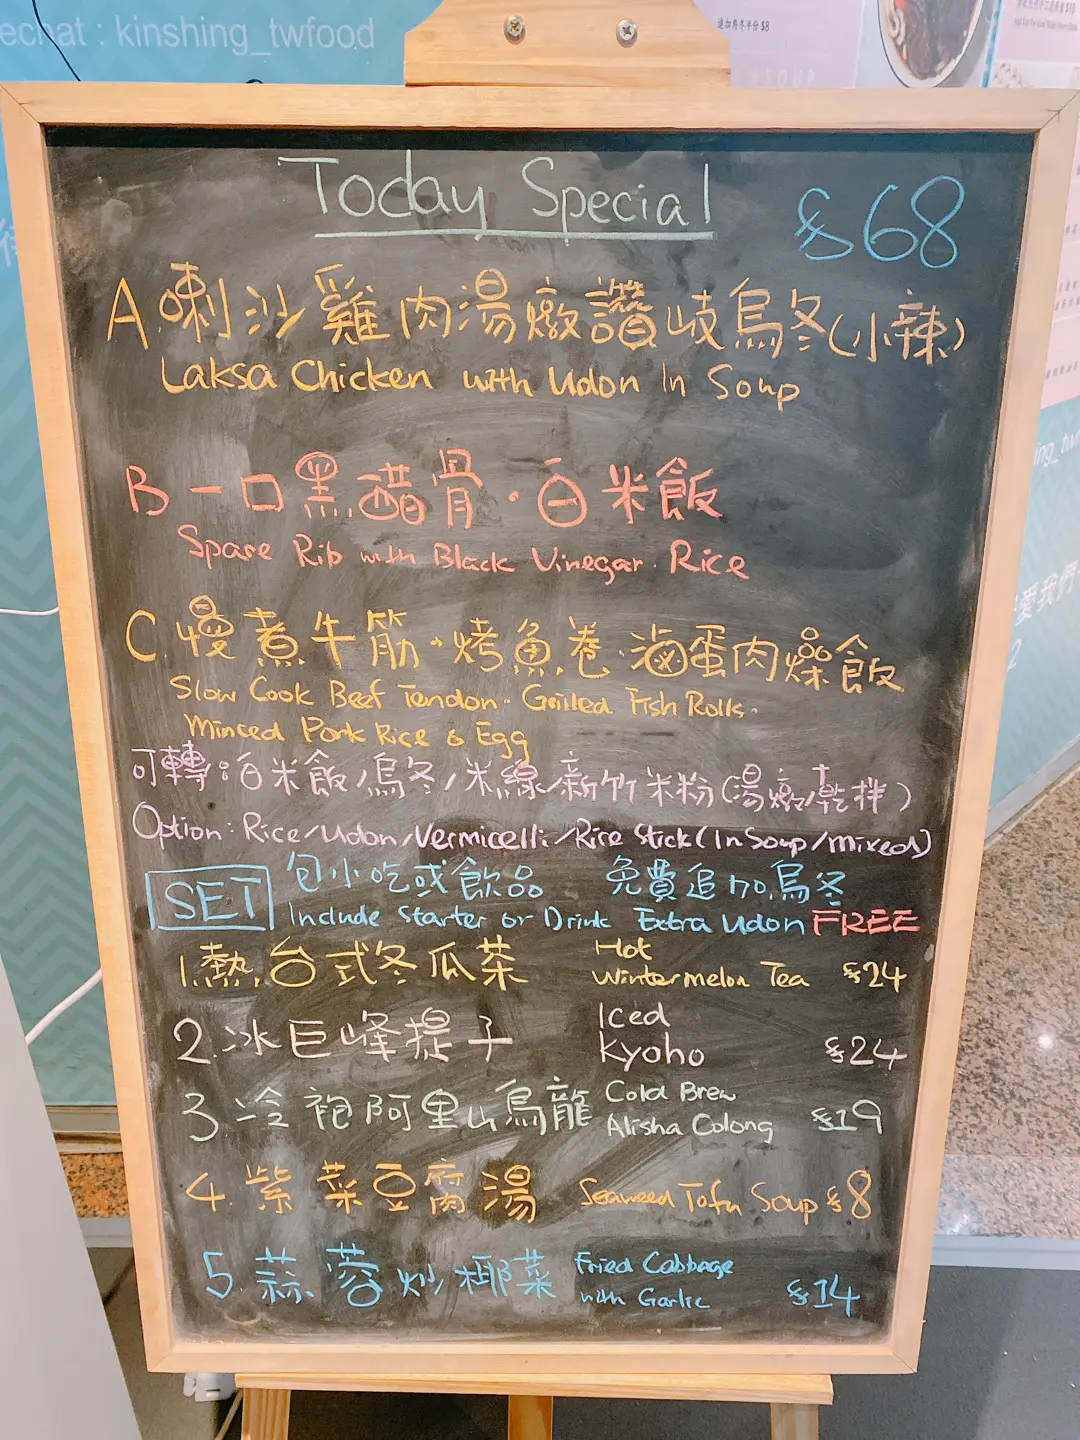 echat : kinshing_twfood
追加烏冬半份 $8
Today Special
$68
A.喇沙雞肉湯燉讚岐烏冬(小辣)
Laksa Chicken with Udon In Soup
B 一口黑醋骨·白米飯
Spare Rib with Black Vinegar. Rice
C.慢煮牛筋·烤魚卷·滷蛋肉燥飯
Slow Cook Beef Tendon. Grilled Fish Rolls.
Minced Pork Rice & Egg
可轉:白米飯/烏冬/米線/新竹米粉(湯燉/乾拌)
Option: Rice/Udon/Vermicelli/Rice Stick(In Soup/mixed)
SET 包小吃或飲品 免費追加烏冬
Include Starter or Drink Extra Udon FREE
1.熱台式冬瓜菜 Hot Wintermelon Tea $24
2.冰巨峰提子 Iced Kyoho $24
3.冷袍阿里山烏龍 Cold Brew Alisha Colong $19
4.紫菜豆腐湯 Seaweed Tofu Soup $8
5.蒜蓉炒椰菜 Fried Cabbage with Garlic $14
ing_tw
愛我們
2